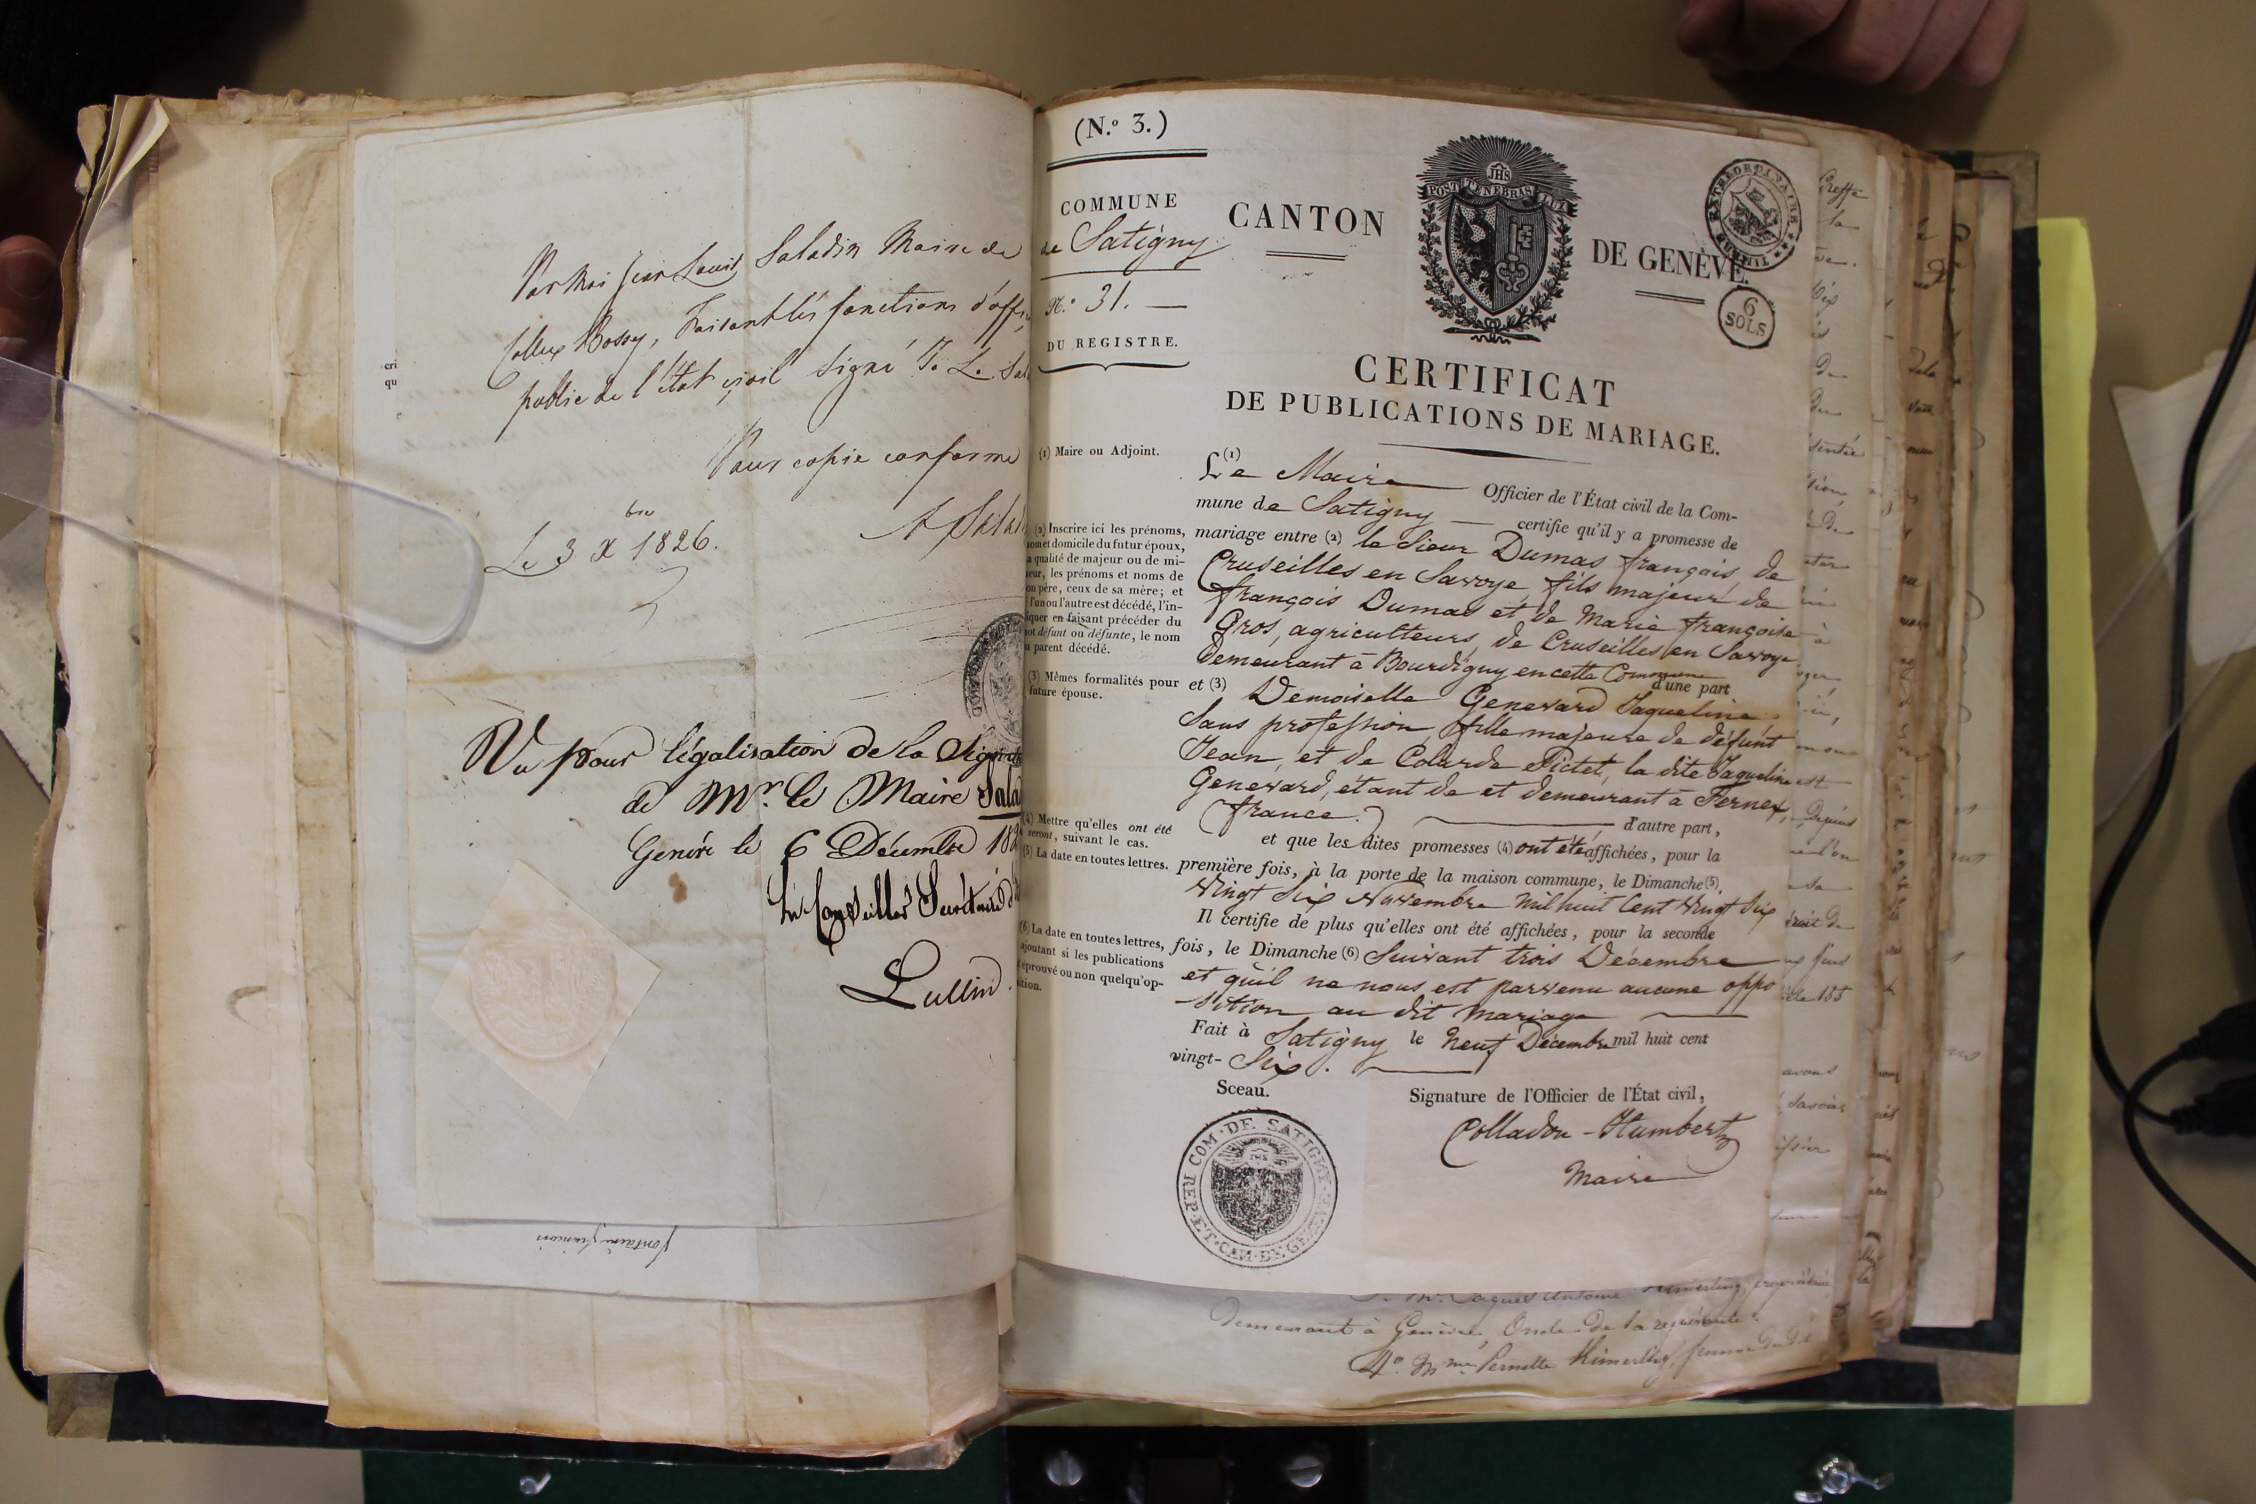 Par Moi Jean Louis Saladin Maire de
Collex Bossy, faisant les fonctions d'offi
public de l'état civil Signé J. L. Sal
Pour copie conforme
Le 3 Xbre 1826.
Vu pour légalisation de la Signat
de Mr. le Maire Sala
Genève le 6 Décembre 182
Le Conseiller Secrétaire d
Lullin.
eri
qu
(N.o 3.)
COMMUNE
de Satigny.
N.o 31. —
DU REGISTRE.
CANTON
POST TENEBRAS LUX
JHS
DE GENÈVE.
TIMBRE EXTRAORDINAIRE
6
SOLS
CERTIFICAT
DE PUBLICATIONS DE MARIAGE.
(1) Maire ou Adjoint.
(2) Inscrire ici les prénoms,
nom et domicile du futur époux,
a qualité de majeur ou de mi-
neur, les prénoms et noms de
on père, ceux de sa mère; et
l'un ou l'autre est décédé, l'in-
iquer en faisant précéder du
ot défunt ou défunte, le nom
u parent décédé.
(3) Mêmes formalités pour
future épouse.
(4) Mettre qu'elles ont été
seront, suivant le cas.
(5) La date en toutes lettres.
(6) La date en toutes lettres,
ajoutant si les publications
éprouvé ou non quelqu'op-
ition.
(1)
Le Maire — Officier de l'État civil de la Com-
mune de Satigny — certifie qu'il y a promesse de
mariage entre (2) le Sieur Dumas françois, de
Cruseilles en Savoye, fils majeur de
françois Dumas et de Marie françoise
Gros, agriculteurs, de Cruseilles en Savoye
demeurant à Bourdigny en cette Commune
d'une part
et (3) Demoiselle Genevard Jaqueline
Sans profession, fille majeure de défunt
Jean, et de Colarde Pictet, la dite Jaqueline
Genevard, étant de et demeurant à Fernex,
(france.) — d'autre part,
et que les dites promesses (4) ont été affichées, pour la
première fois, à la porte de la maison commune, le Dimanche (5)
Vingt Six Novembre mil huit Cent Vingt Six
Il certifie de plus qu'elles ont été affichées, pour la seconde
fois, le Dimanche (6) Suivant trois Décembre
et qu'il ne nous est parvenu aucune oppo
-sition au dit mariage —
Fait à Satigny le neuf Décembre mil huit cent
vingt-Six. —
Sceau.
Signature de l'Officier de l'État civil,
Colladon-Humbert
Maire
COM. DE SATIGNY
REP. ET. CAN. DE GENEVE
fontaine françois
demeurant à Genève, Oncle de la requérante.
4o Mme Pernette Kimerling, femme du dit